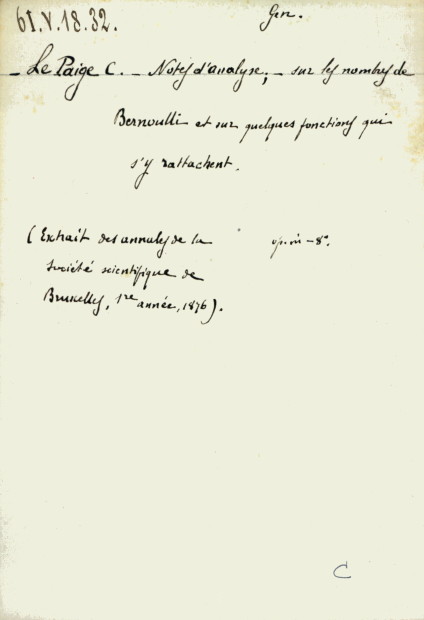 61.V.18.32.
Gen.
- Le Paige C. - Notes d'analyse; - sur les nombres de
Bernoulli et sur quelques fonctions qui
s'y rattachent.
(Extrait des annales de la
op. in-8°.
Société scientifique de
Bruxelles, 1re année, 1876).
C